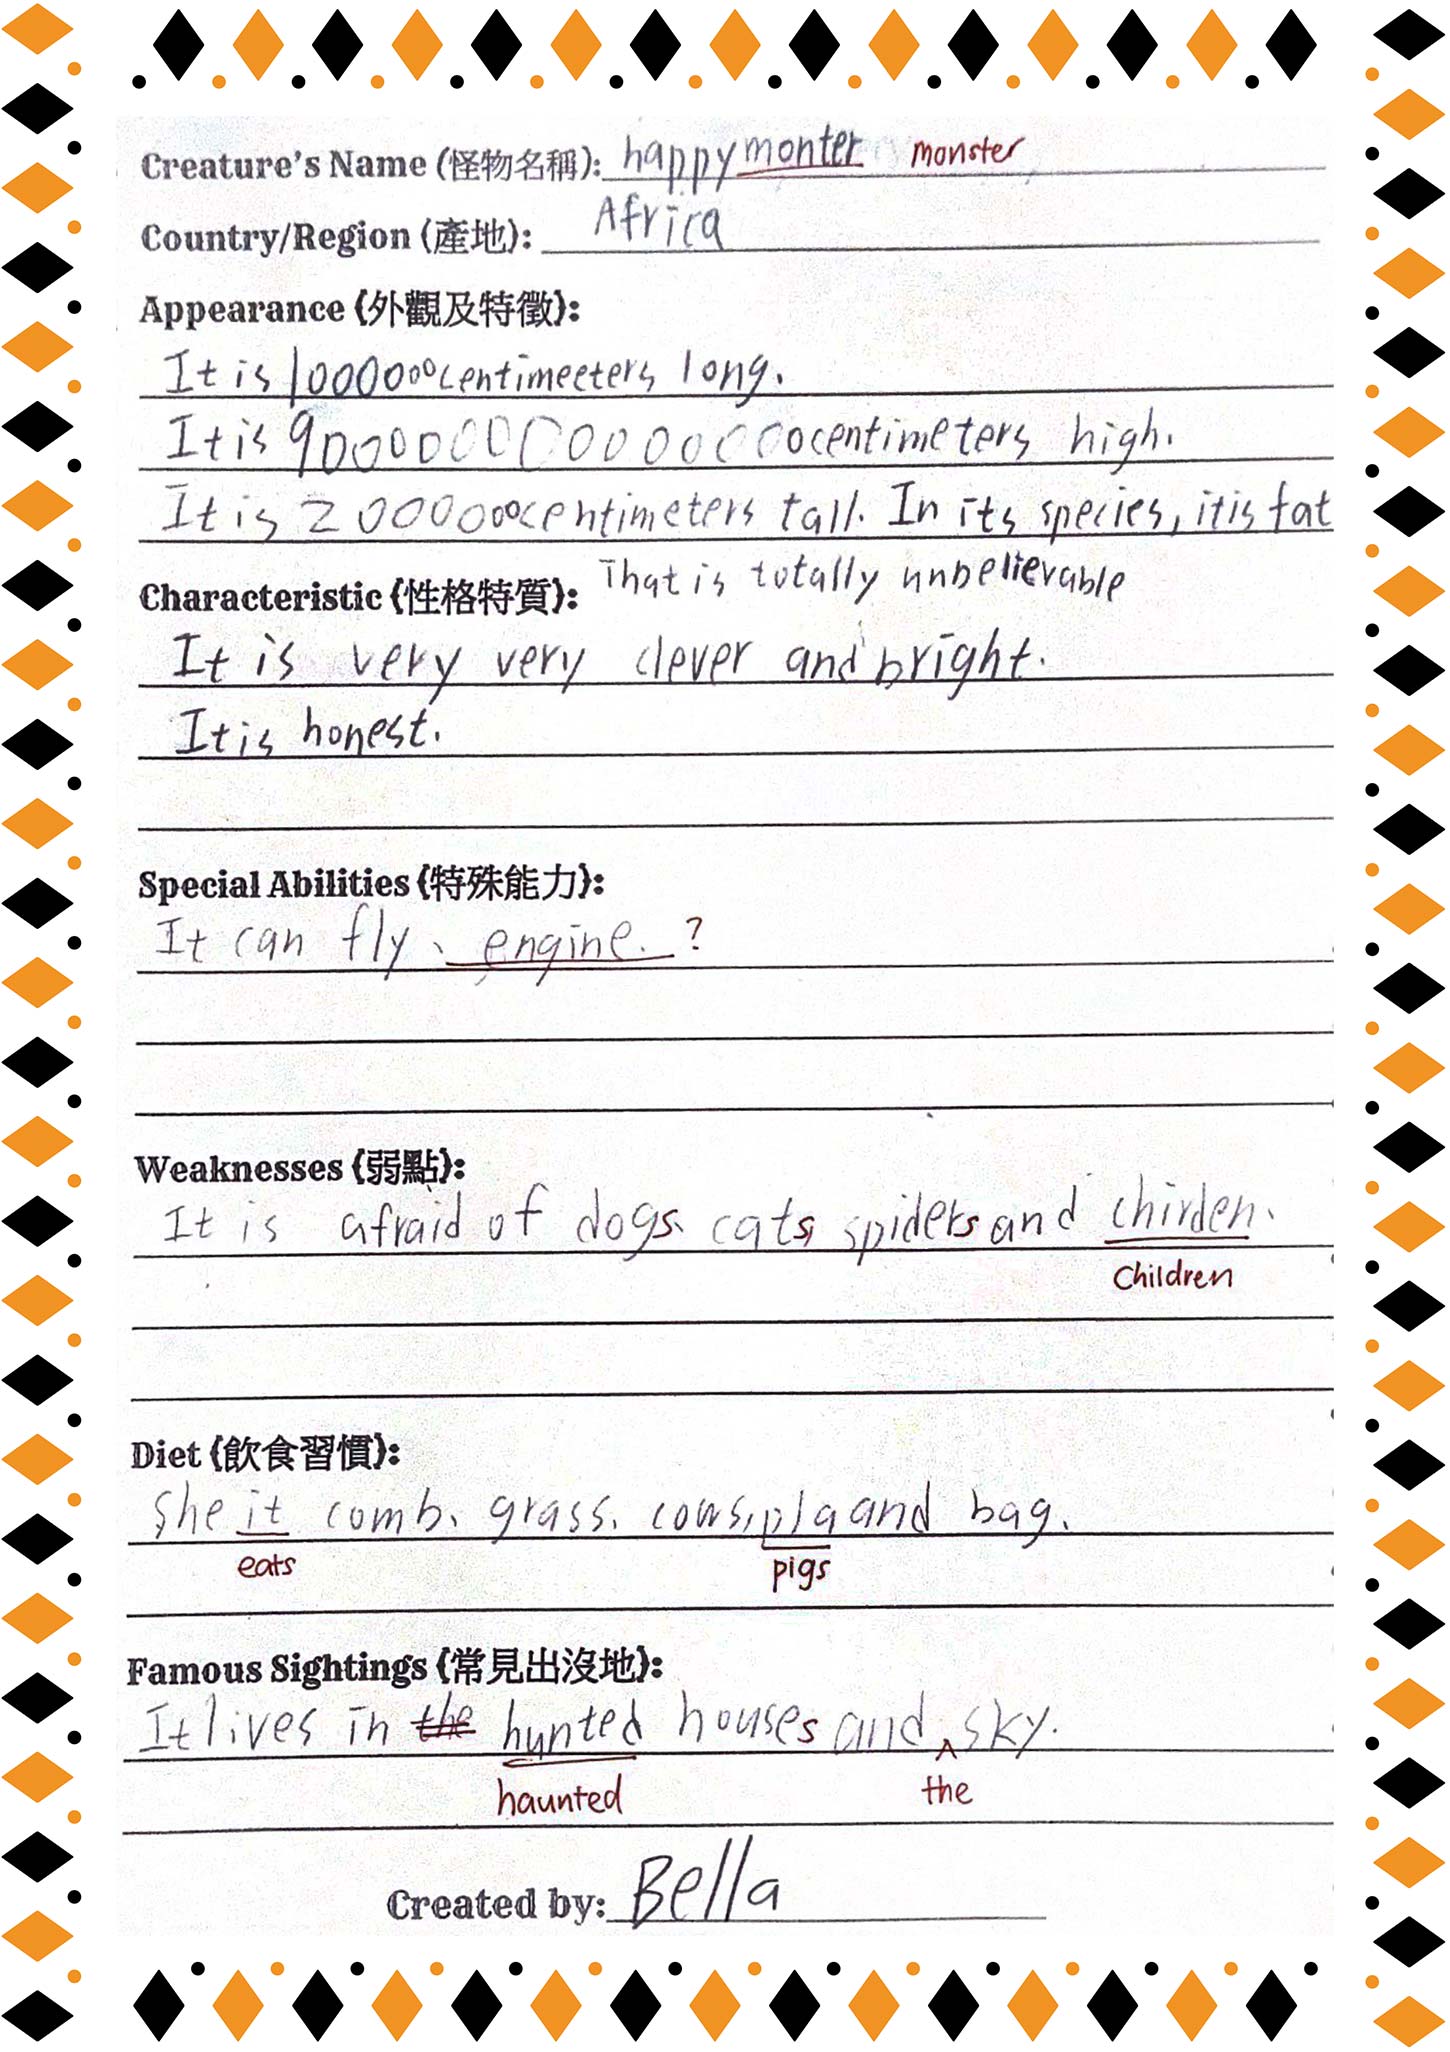 Creature's Name (怪物名稱): happy monter monster
Country/Region (產地): Africa
Appearance (外觀及特徵):
It is 100000000centimeeters long.
It is 900000000000000centimeters high.
It is 200000000centimeters tall. In its species, it is fat
Characteristic (性格特質): That is totally unbelievable
It is very very clever and bright.
It is honest.
Special Abilities (特殊能力):
It can fly、engine. ?
Weaknesses (弱點):
It is afraid of dogs、cats, spiders and chirden.
children
Diet (飲食習慣):
She it comb、grass、cows, pla and bag.
eats pigs
Famous Sightings (常見出沒地):
It lives in the hunted houses and sky.
haunted the
Created by: Bella